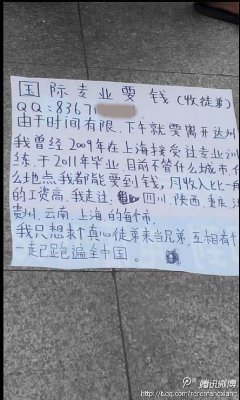 国际专业要钱（收徒弟）
QQ:8367
由于时间有限.下午就要离开达州
我曾经2009年在上海接受过专业训
练,于2011年毕业 目前不管什么城市
么地点我都能要到钱,月收入比一般
的工资高,我走过 四川.陕西.重庆
贵州.云南.上海.的每个市.
我只想来个真心徒弟来当兄弟.互相有个
一走起跑遍全中国.
腾讯微博